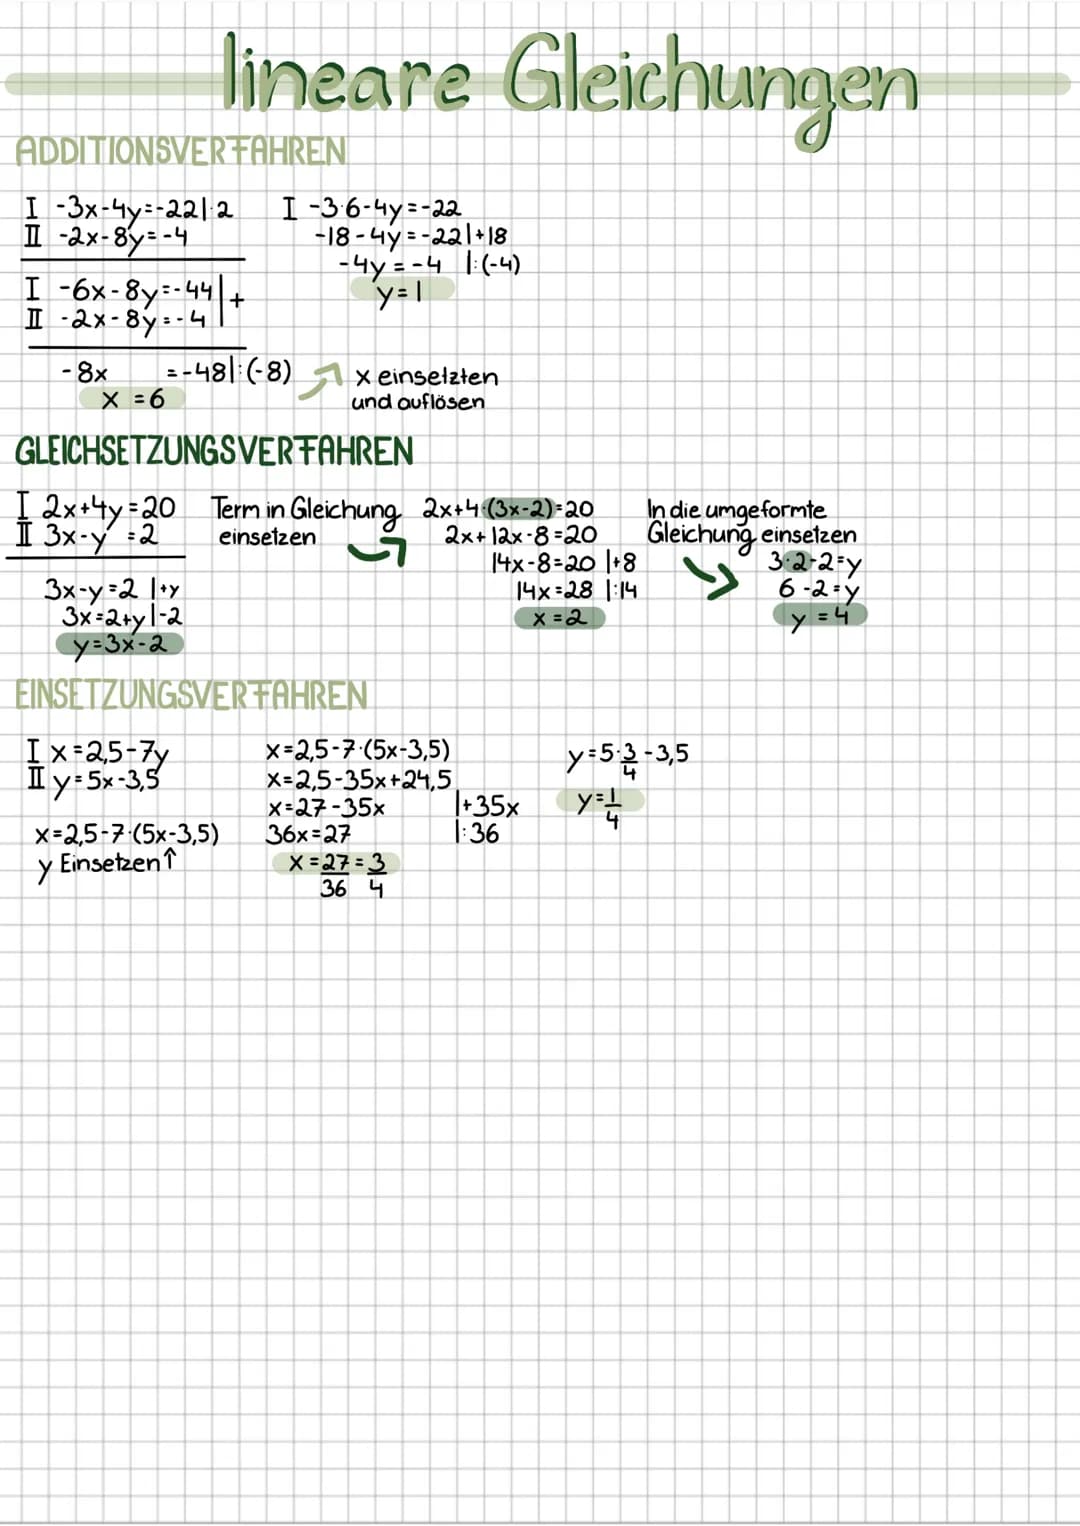 lineare Gleichungen
ADDITIONSVERFAHREN
I -3x-4y=-22|·2
II -2x-8y=-4
I -6x-8y=-44|+
II -2x-8y=-4
-8x =-48|:(-8)
x =6
I -3·6-4y=-22
-18-4y=-22|+18
-4y=-4 |:(-4)
y=1
x einsetzten
und auflösen
GLEICHSETZUNGSVERFAHREN
I 2x+4y=20
II 3x-y =2
3x-y=2 |+y
3x=2+y|-2
y=3x-2
Term in Gleichung
einsetzen
2x+4·(3x-2)=20
2x+12x-8=20
14x-8=20 |+8
14x=28 |:14
x=2
In die umgeformte
Gleichung einsetzen
3·2-2=y
6-2=y
y =4
EINSETZUNGSVERFAHREN
I x=2,5-7y
II y=5x-3,5
x=2,5-7·(5x-3,5)
y Einsetzen↑
x=2,5-7·(5x-3,5)
x=2,5-35x+24,5
x=27-35x |+35x
36x=27 |:36
x=27/36=3/4
y=5·3/4-3,5
y=1/4